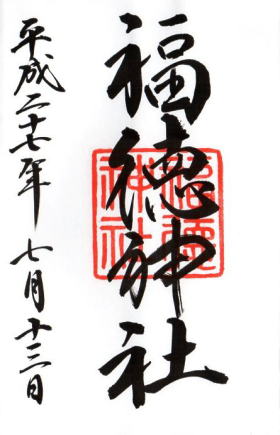 福徳神社
平成二十七年 七月十三日
福徳
神社